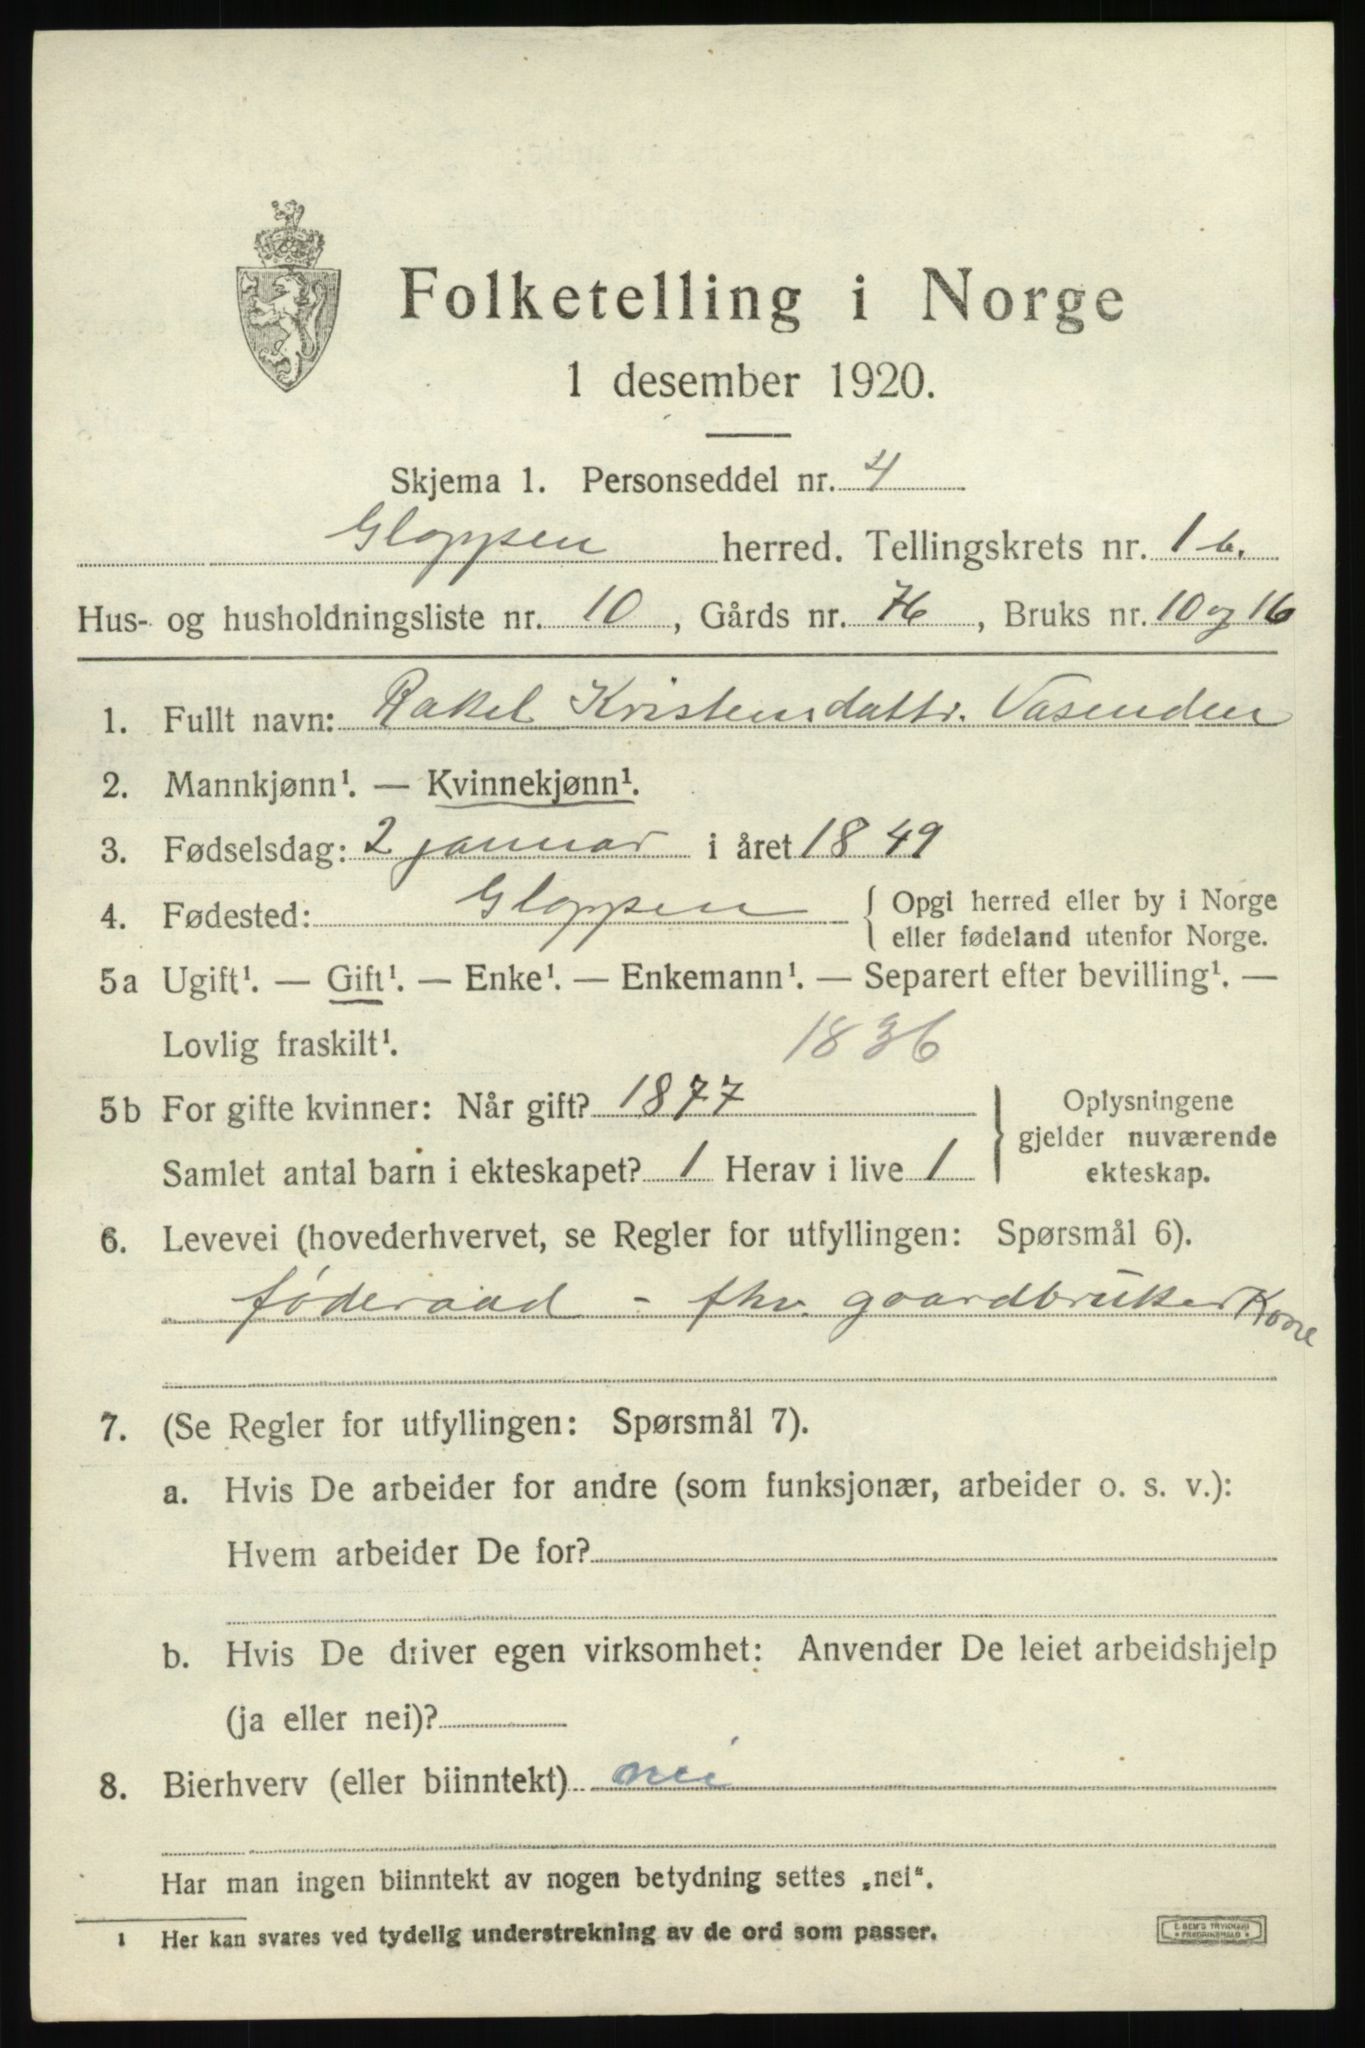 Folketelling i Norge
1 desember 1920.
Skjema 1. Personseddel nr. 4
Gloppen herred. Tellingskrets nr. 1 b.
Hus- og husholdningsliste nr. 10, Gårds nr. 76, Bruks nr. 10 og 16
1. Fullt navn: Rakel Kristensdattr. Vasenden
2. Mannkjønn¹. — Kvinnekjønn¹.
3. Fødselsdag: 2 januar i året 1849
4. Fødested: Gloppen { Opgi herred eller by i Norge
eller fødeland utenfor Norge.
5a Ugift¹. — Gift¹. — Enke¹. — Enkemann¹. — Separert efter bevilling¹. —
Lovlig fraskilt¹. 1836
5b For gifte kvinner: Når gift? 1877 } Oplysningene
gjelder nuværende
Samlet antal barn i ekteskapet? 1 Herav i live 1 ekteskap.
6. Levevei (hovederhvervet, se Regler for utfyllingen: Spørsmål 6).
føderaad - fhv. gaardbruker Kone
7. (Se Regler for utfyllingen: Spørsmål 7).
a. Hvis De arbeider for andre (som funksjonær, arbeider o. s. v.):
Hvem arbeider De for?
b. Hvis De driver egen virksomhet: Anvender De leiet arbeidshjelp
(ja eller nei)?
8. Bierhverv (eller biinntekt) nei
Har man ingen biinntekt av nogen betydning settes „nei“.
1 Her kan svares ved tydelig understrekning av de ord som passer.
E. SEM'S TRYKKERI
FREDRIKSHALD